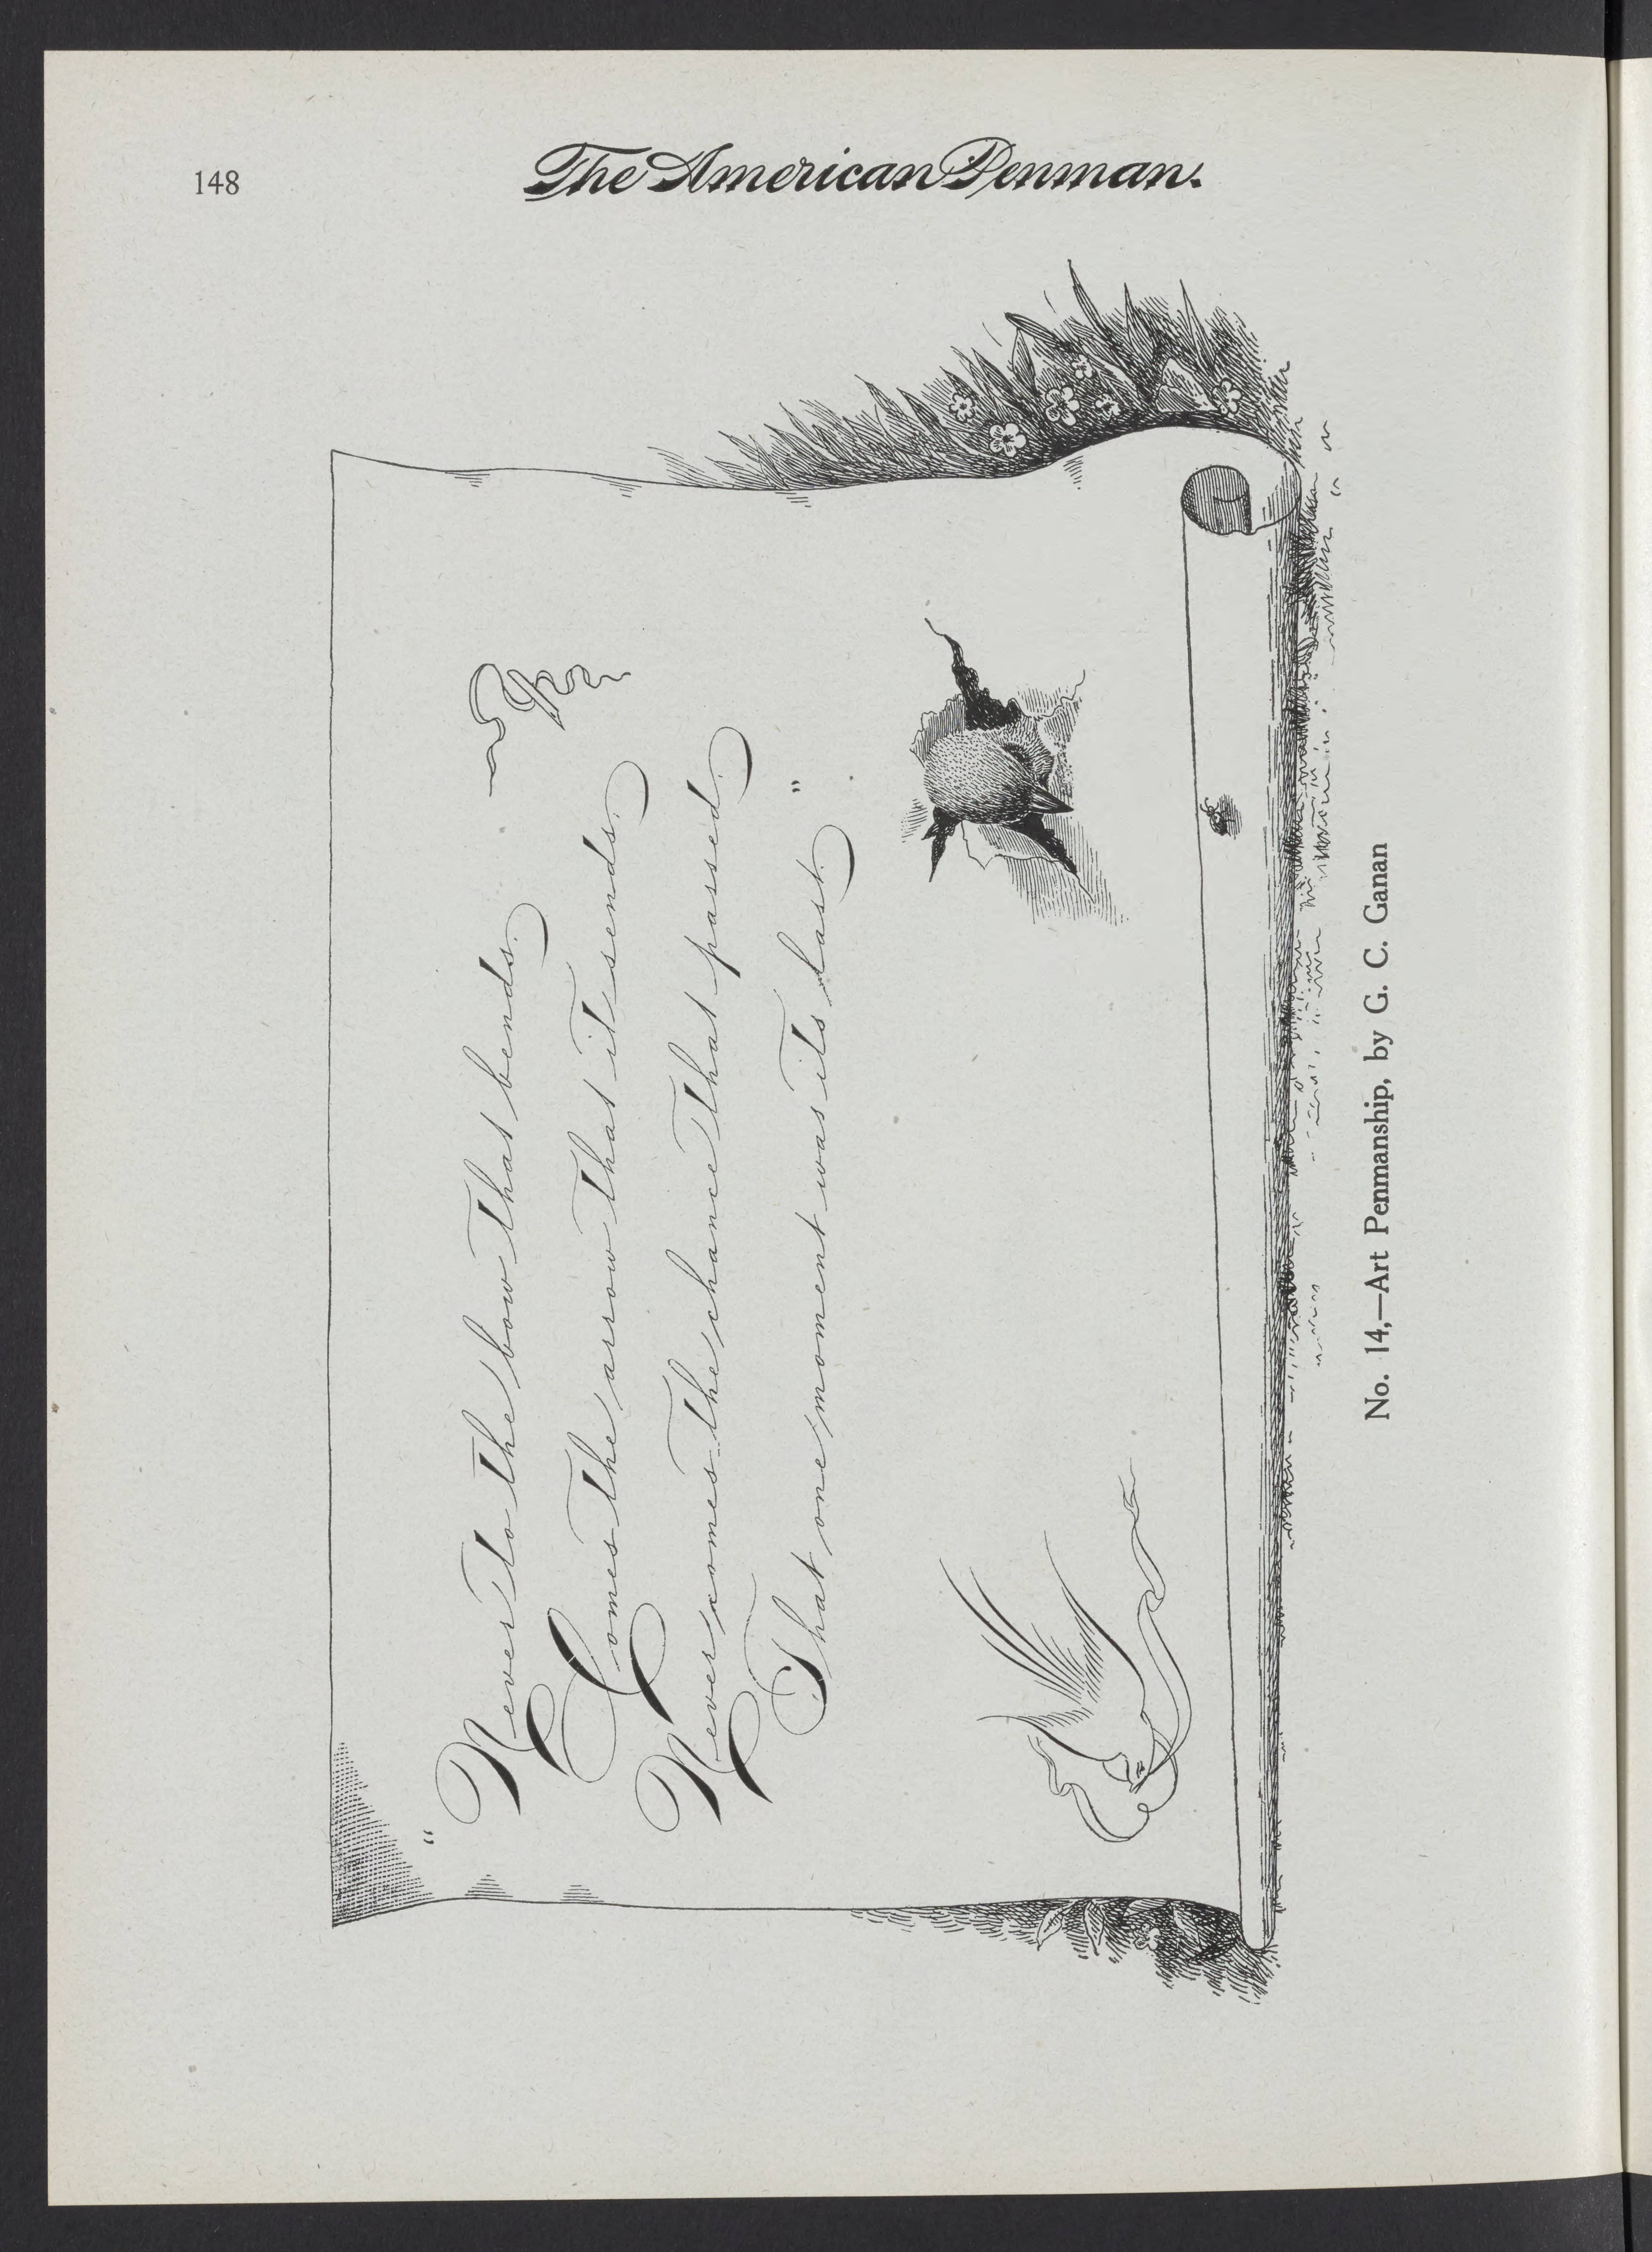 148
The American Penman.
"Never to the bow that bends
Comes the arrow that it sends.
Never comes the chance that passed.
That one moment was its last."
No. 14,—Art Penmanship, by G. C. Ganan